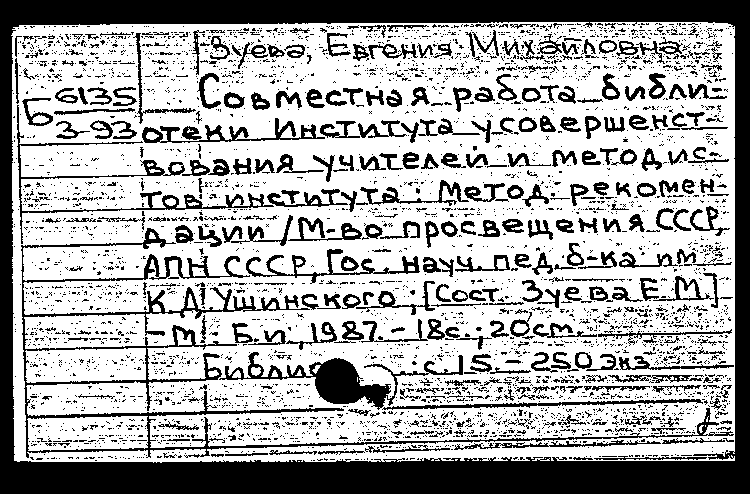 Зуева, Евгения Михайловна
Б 6135
3-93
Совместная работа библи-
отеки Института усовершенст-
вования учителей и методис-
тов института: Метод. рекомен-
дации / М-во просвещения СССР,
АПН СССР, Гос. науч. пед. б-ка им
К.Д. Ушинского; [Сост. Зуева Е.М.]
- М.: Б.и., 1987. - 18 с.; 20 см.
: с. 15. - 250 экз